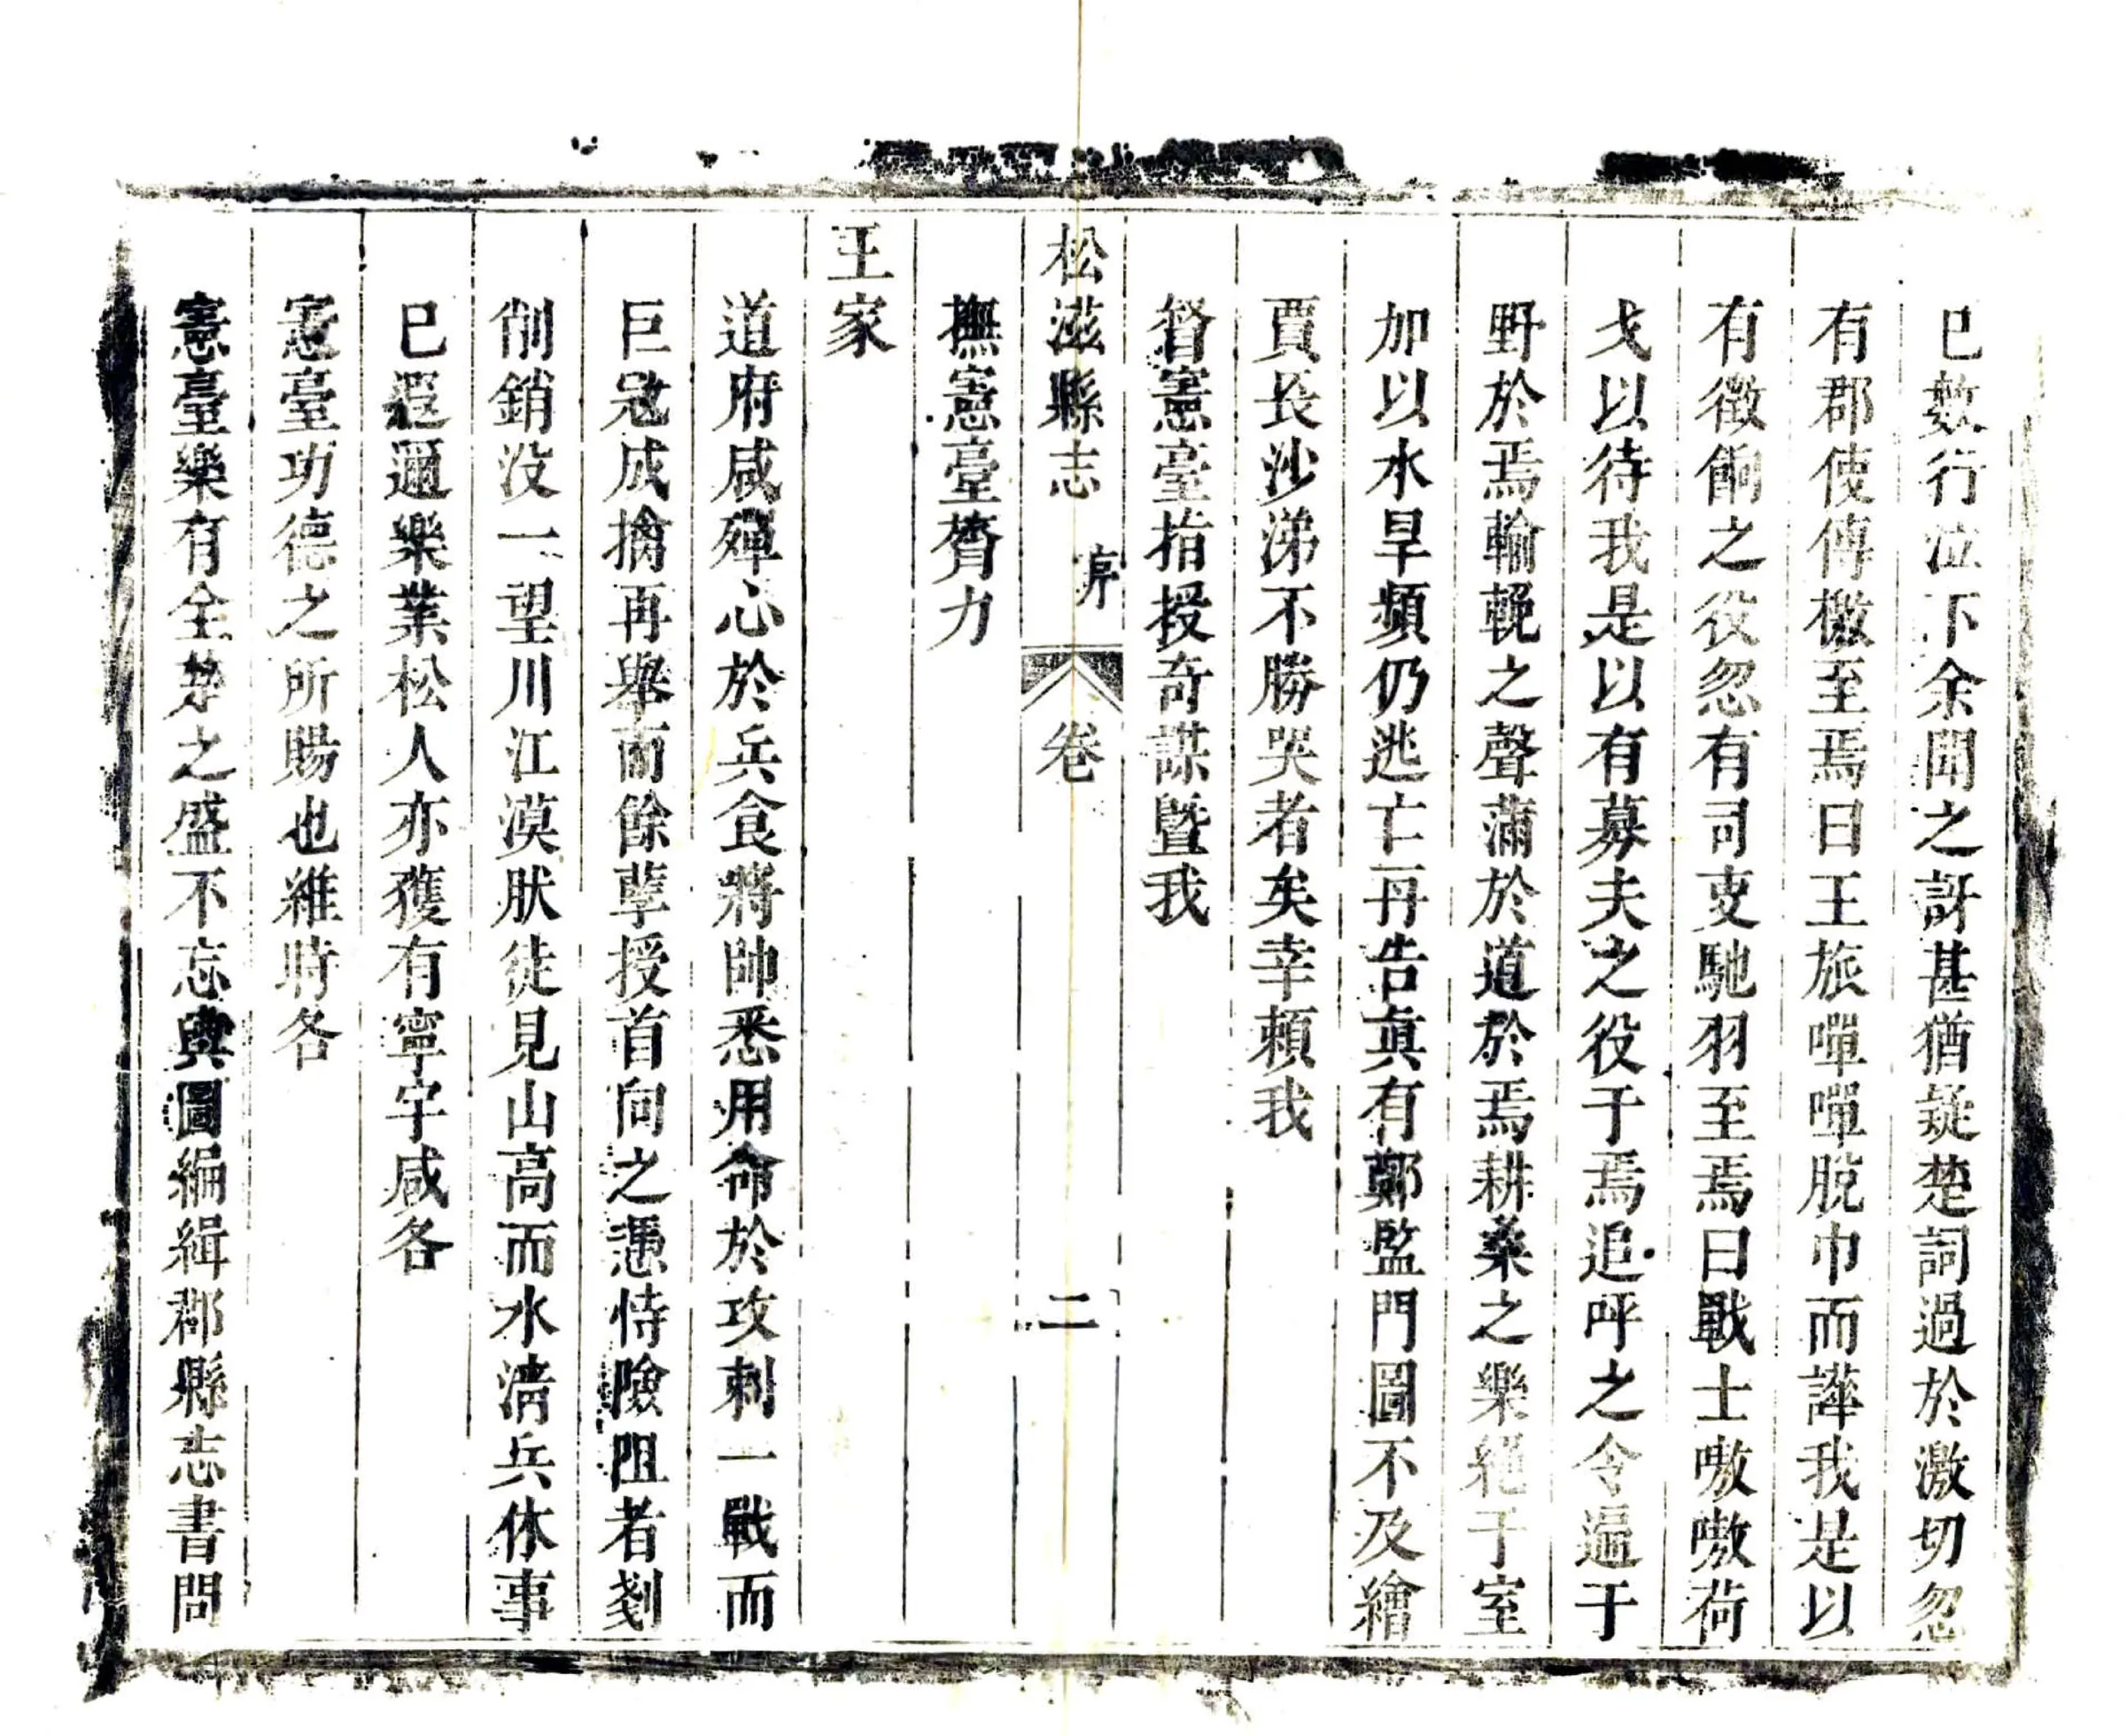 已數行泣下余聞之訝甚猶疑楚詞過於激切忽
有郡使傳檄至焉曰王旅嘽嘽脫巾而譁我是以
有徵餉之役忽有司叓馳羽至焉曰戰士嗷嗷荷
戈以待我是以有募夫之役于焉追呼之令遍于
野於焉輸輓之聲滿於道於焉耕桑之樂絕于室
加以水旱頻仍逃亡再告眞有鄭監門圖不及繪
賈長沙涕不勝哭者矣幸頼我
督憲臺指授奇謀曁我
松滋縣志 序 卷 二
撫憲臺齊力
王家
道府咸殫心於兵食將帥悉用命於攻刺一戰而
巨冦成擒再舉而餘孽授首向之憑恃險阻者剗
削銷没一望川江漠肰徒見山高而水淸兵休事
已遐邇樂業松人亦獲有寧宇咸各
憲臺功德之所賜也維時各
憲臺樂有全楚之盛不忘輿圖編緝郡縣志書問